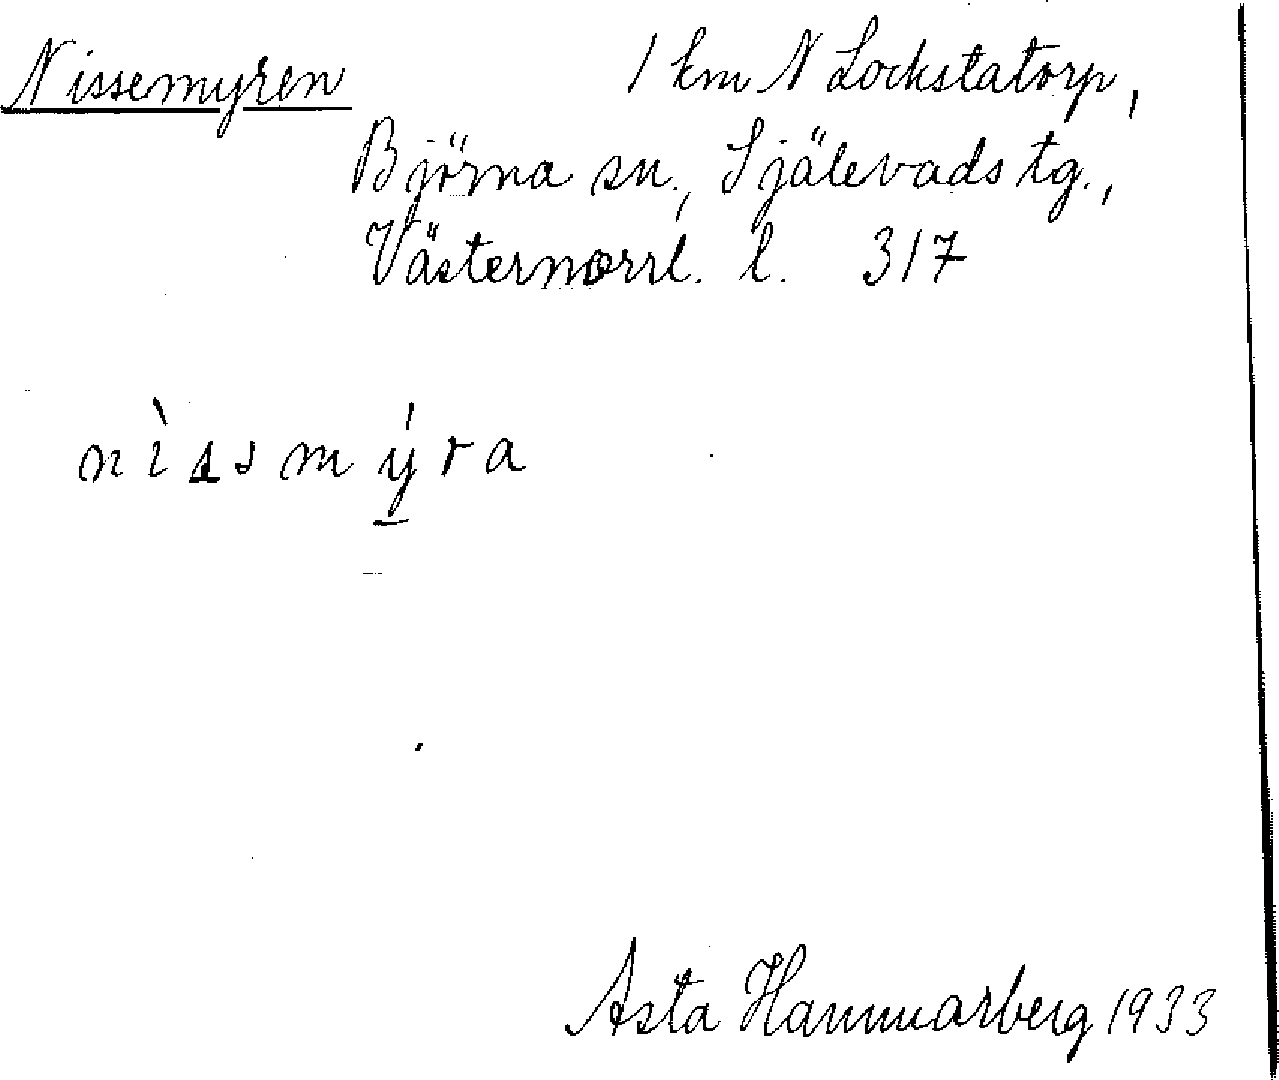 Nissemyren 1 km N Lockstatorp,
Björna sn., Själevads tg.,
Västernorrl. l. 317
nìssmýra
Asta Hammarberg 1933